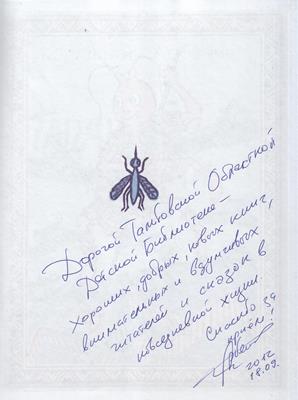 Дорогой Тамбовской Областной
Детской Библиотеке –
хороших, добрых, новых книг,
внимательных и вдумчивых
читателей и сказок в
повседневной жизни.
Спасибо за
приём!
2012
18.09.